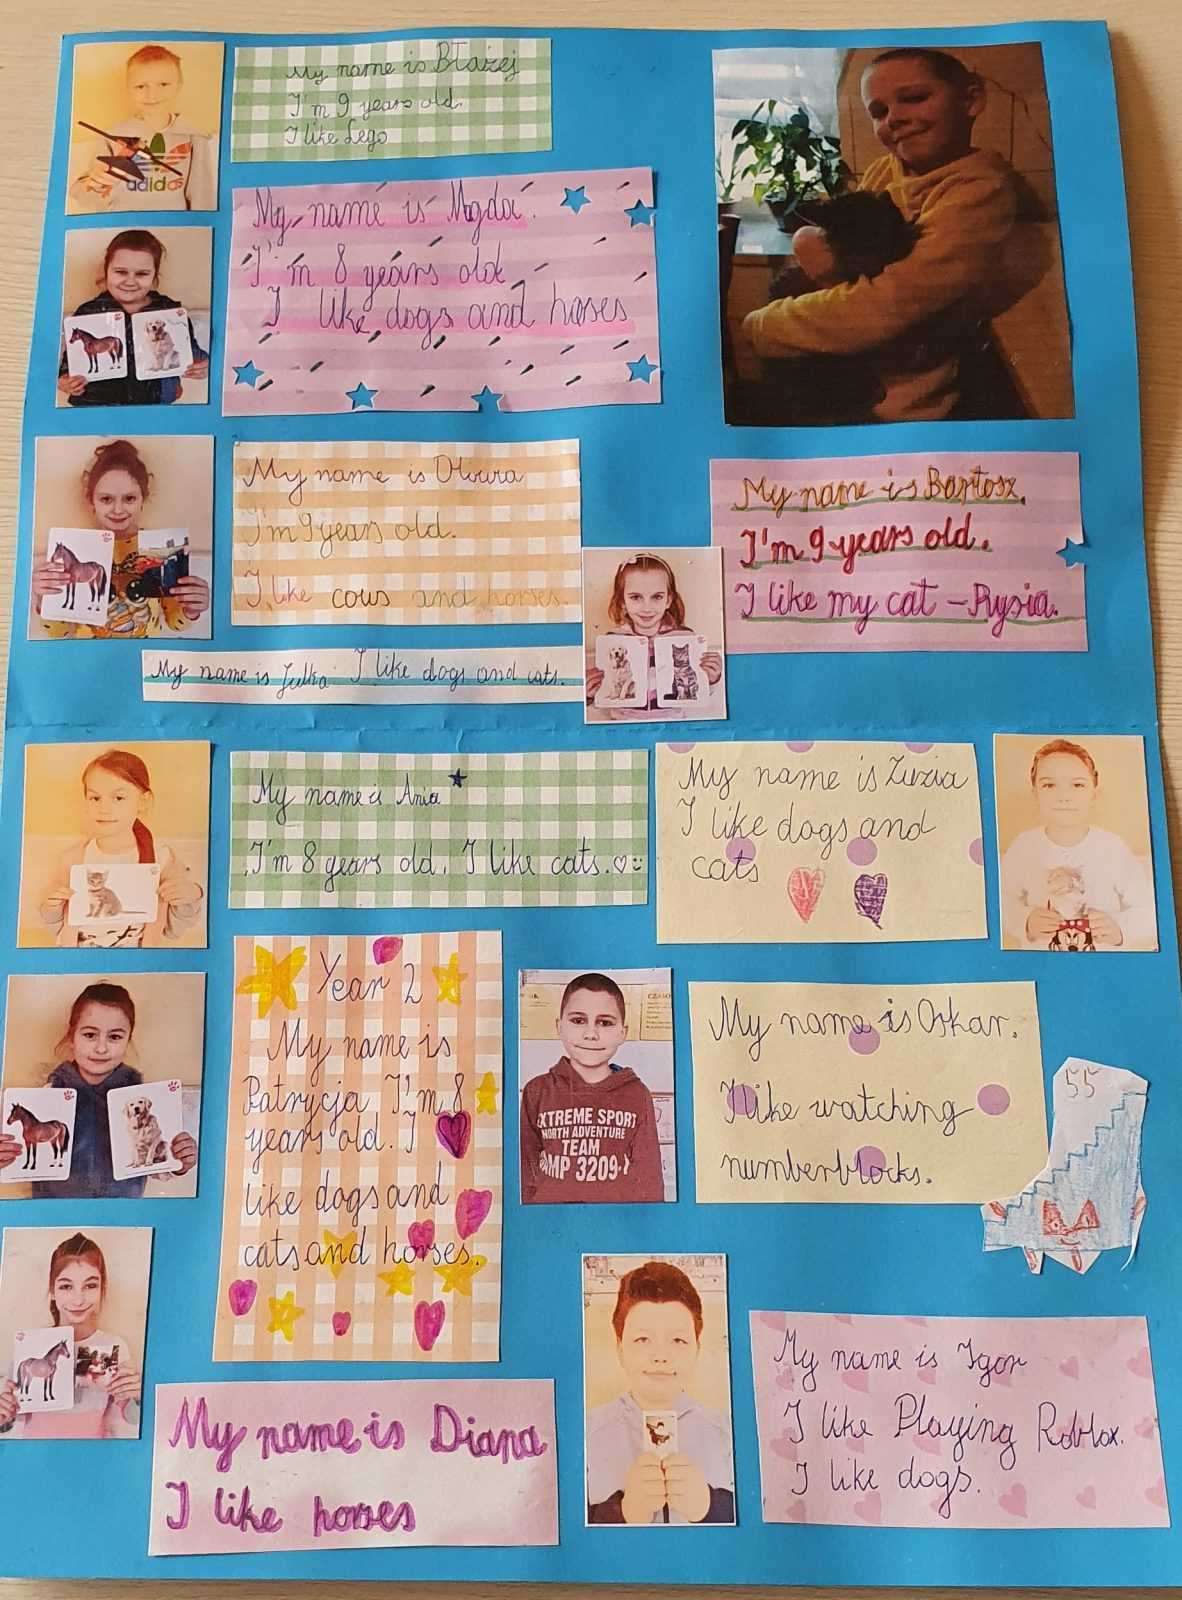 My name is Błażej
I'm 9 years old.
I like Lego
adidas
My name is Magda.
I'm 8 years old
I like dogs and horses
My name is Oliwia
I'm 9 years old.
I like cows and horses.
My name is Bartosz.
I'm 9 years old.
I like my cat – Rysia.
My name is Julka. I like dogs and cats.
My name is Ania
I'm 8 years old. I like cats.
My name is Zuzia
I like dogs and
cats
Year 2
My name is
Patrycja I'm 8
years old. I
like dogs and
cats and horses.
EXTREME SPORT
NORTH ADVENTURE
TEAM
CAMP 3209
My name is Oskar.
I like watching
numberblocks.
55
My name is Diana
I like horses
My name is Igor
I like Playing Roblox.
I like dogs.